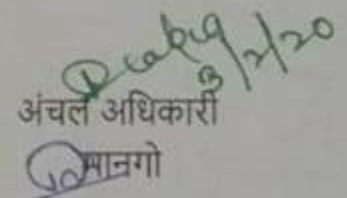 3/2/20
अंचल अधिकारी
मानगो